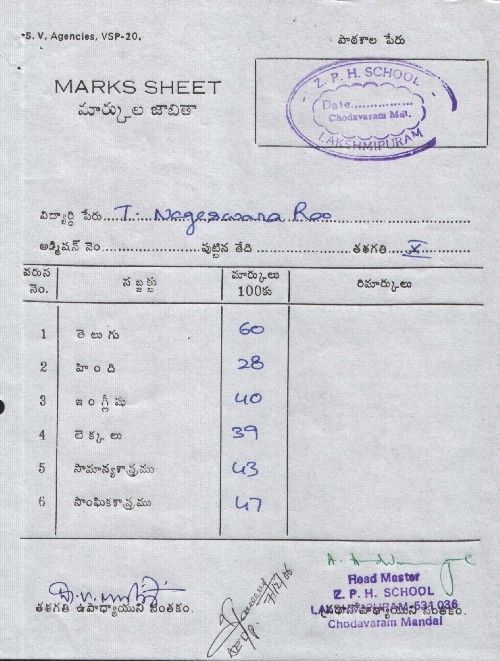 S. V. Agencies, VSP-20.
పాఠశాల పేరు
MARKS SHEET
మార్కుల జాబితా
Z. P. H. SCHOOL
Date................
Chodavaram Mdl.
LAKSHMIPURAM
విద్యార్థి పేరు T. Nageswara Rao
అడ్మిషన్ నెం ........................ పుట్టిన తేది ........................ తరగతి X
వరుస నెం. సబ్జక్టు మార్కులు 100కు రిమార్కులు
1 తెలుగు 60
2 హింది 28
3 ఇంగ్లీషు 40
4 లెక్కలు 39
5 సామాన్యశాస్త్రము 43
6 సాంఘికశాస్త్రము 47
తరగతి ఉపాధ్యాయుని సంతకం.
Head Master
Z. P. H. SCHOOL
LAKSHMIPURAM-531036
ప్రధానోపాధ్యాయుని సంతకం.
Chodavaram Mandal